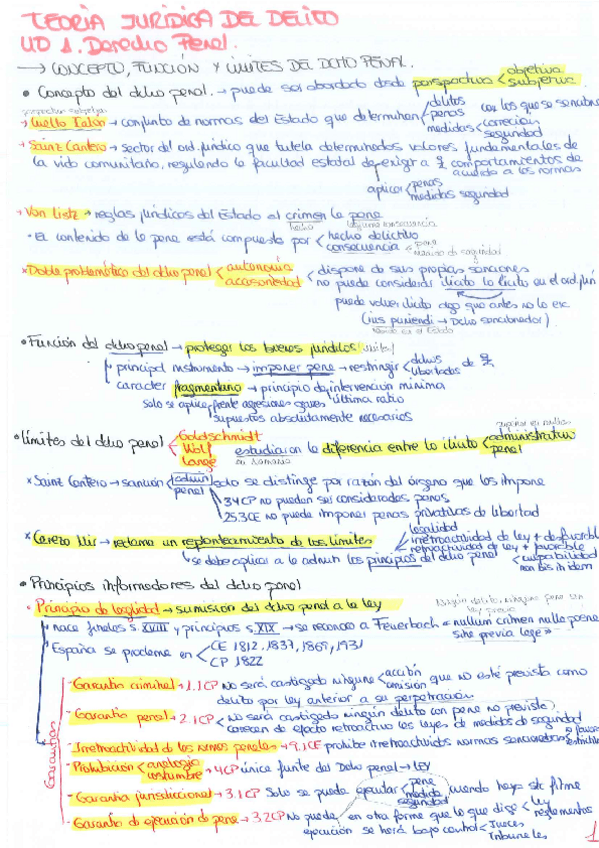 TEORÍA JURÍDICA DEL DELITO
UD 1. Derecho Penal.
→ CONCEPTO, FUNCIÓN Y LÍMITES DEL DCHO PENAL.
• Concepto del dcho penal. → puede ser abordado desde perspectiva objetiva
subjetiva
→ Cuello Calón → conjunto de normas del Estado que determinan delitos
penas con los que se
medidas corrección
seguridad
→ Sainz Cantero → sector del ord. jurídico que tutela determinados valores fundamentales de
la vida comunitaria, regulando la facultad estatal de exigir a comportamientos de
acuerdo a las normas
aplicar penas
medidas seguridad
→ Von Listz → reglas jurídicas del Estado al crimen la pena
hecho
• El contenido de la pena está compuesto por hecho delictivo
consecuencia = pena
medida de seguridad
× Doble problemática del dcho penal autonomía
accesoriedad
dispone de sus propias sanciones
no puede considerar ilícito lo lícito en el ord. jurí
puede volver ilícito algo que antes no lo era
(ius puniendi → Dcho sancionador)
• Función del dcho penal → proteger los bienes jurídicos
principal instrumento → imponer pena → restringir dchos
libertades de
caracter fragmentario → principio de intervención mínima
solo se aplica frente agresiones graves última ratio
supuestos absolutamente necesarios
• límites del dcho penal Goldschmidt
Wolf
Lange
estudiaron la diferencia entre lo ilícito administrativo
penal
en Alemania
× Sainz Cantero → sanción admin
penal solo se distingue por razón del órgano que las impone
34 CP no pueden ser consideradas penas
25.3 CE no puede imponer penas privativas de libertad
× Cerezo Mir → reclama un replanteamiento de los límites
legalidad
irretroactividad de ley + desfavorable
retroactividad de ley + favorable
se debe aplicar a lo admin los principios del dcho penal culpabilidad
non bis in idem
• Principios informadores del dcho penal
• Principio de legalidad → sumisión del dcho penal a la ley
Ningún delito, ninguna pena sin
ley previa
nace finales s. XVIII y principios s. XIX → se reconoce a Feuerbach « nullum crimen nulla poena
sine previa lege »
España se proclama en CE 1812, 1837, 1869, 1931
CP 1822
Garantías
- Garantía criminal → 1.1 CP No será castigada ninguna acción
omisión que no esté prevista como
delito por ley anterior a su perpetración
- Garantía penal → 2.1 CP No será castigado ningún delito con pena no prevista
carecen de efecto retroactivo las leyes de medidas de seguridad
- Irretroactividad de las normas penales → 9.3 CE prohibe irretroactividad normas sancionadoras
- Prohibición analogía
costumbre → 4 CP única fuente del Dcho penal → LEY
- Garantía jurisdiccional → 3.1 CP Solo se puede ejecutar pena
medida
seguridad cuando haya stc firme
- Garantía de ejecución de pena → 3.2 CP No puede en otra forma que la que diga ley
reglamentos
ejecución se hará bajo control Jueces
Tribunales
1